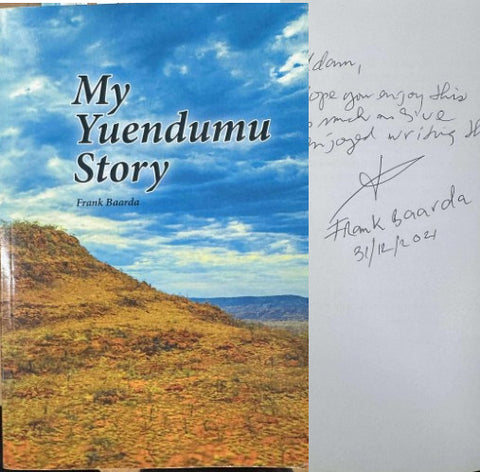 My
Yuendumu
Story
Frank Baarda
dann,
ope you enjoy this
much as I've
njoyed writing th
Frank Baarda
31/12/2021